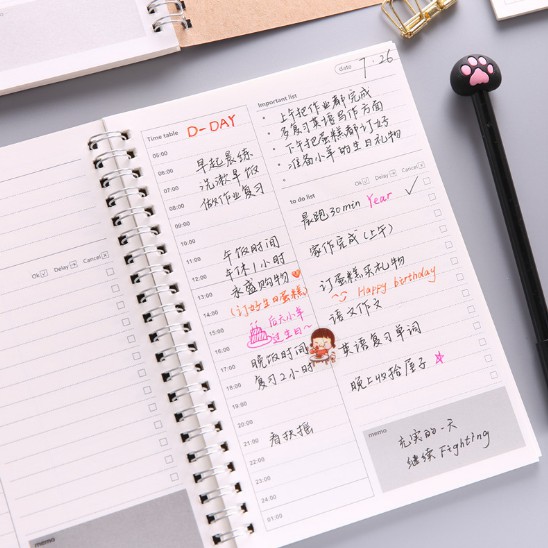 Ok Delay Cancel
Time table
D-DAY
05:00
06:00
早起晨练
07:00
洗漱早饭
08:00
做作业复习
09:00
10:00
11:00
午饭时间
12:00
午休1小时
13:00
永盛购物
14:00
(订好生日蛋糕)
15:00
后天小羊
过生日~
16:00
17:00
晚饭时间
18:00
复习2小时
19:00
20:00
21:00
看扶摇
22:00
23:00
24:00
01:00
date 7·26
Important list
上午把作业都完成
多复习英语写作方面
下午把蛋糕都订好
准备小羊的生日礼物
to do list
Ok Delay Cancel
晨跑30min Year
家作完成(上午)
订蛋糕买礼物
Happy birthday
语文作文
英语复习单词
晚上收拾屋子
memo
充实的一天
继续Fighting
memo